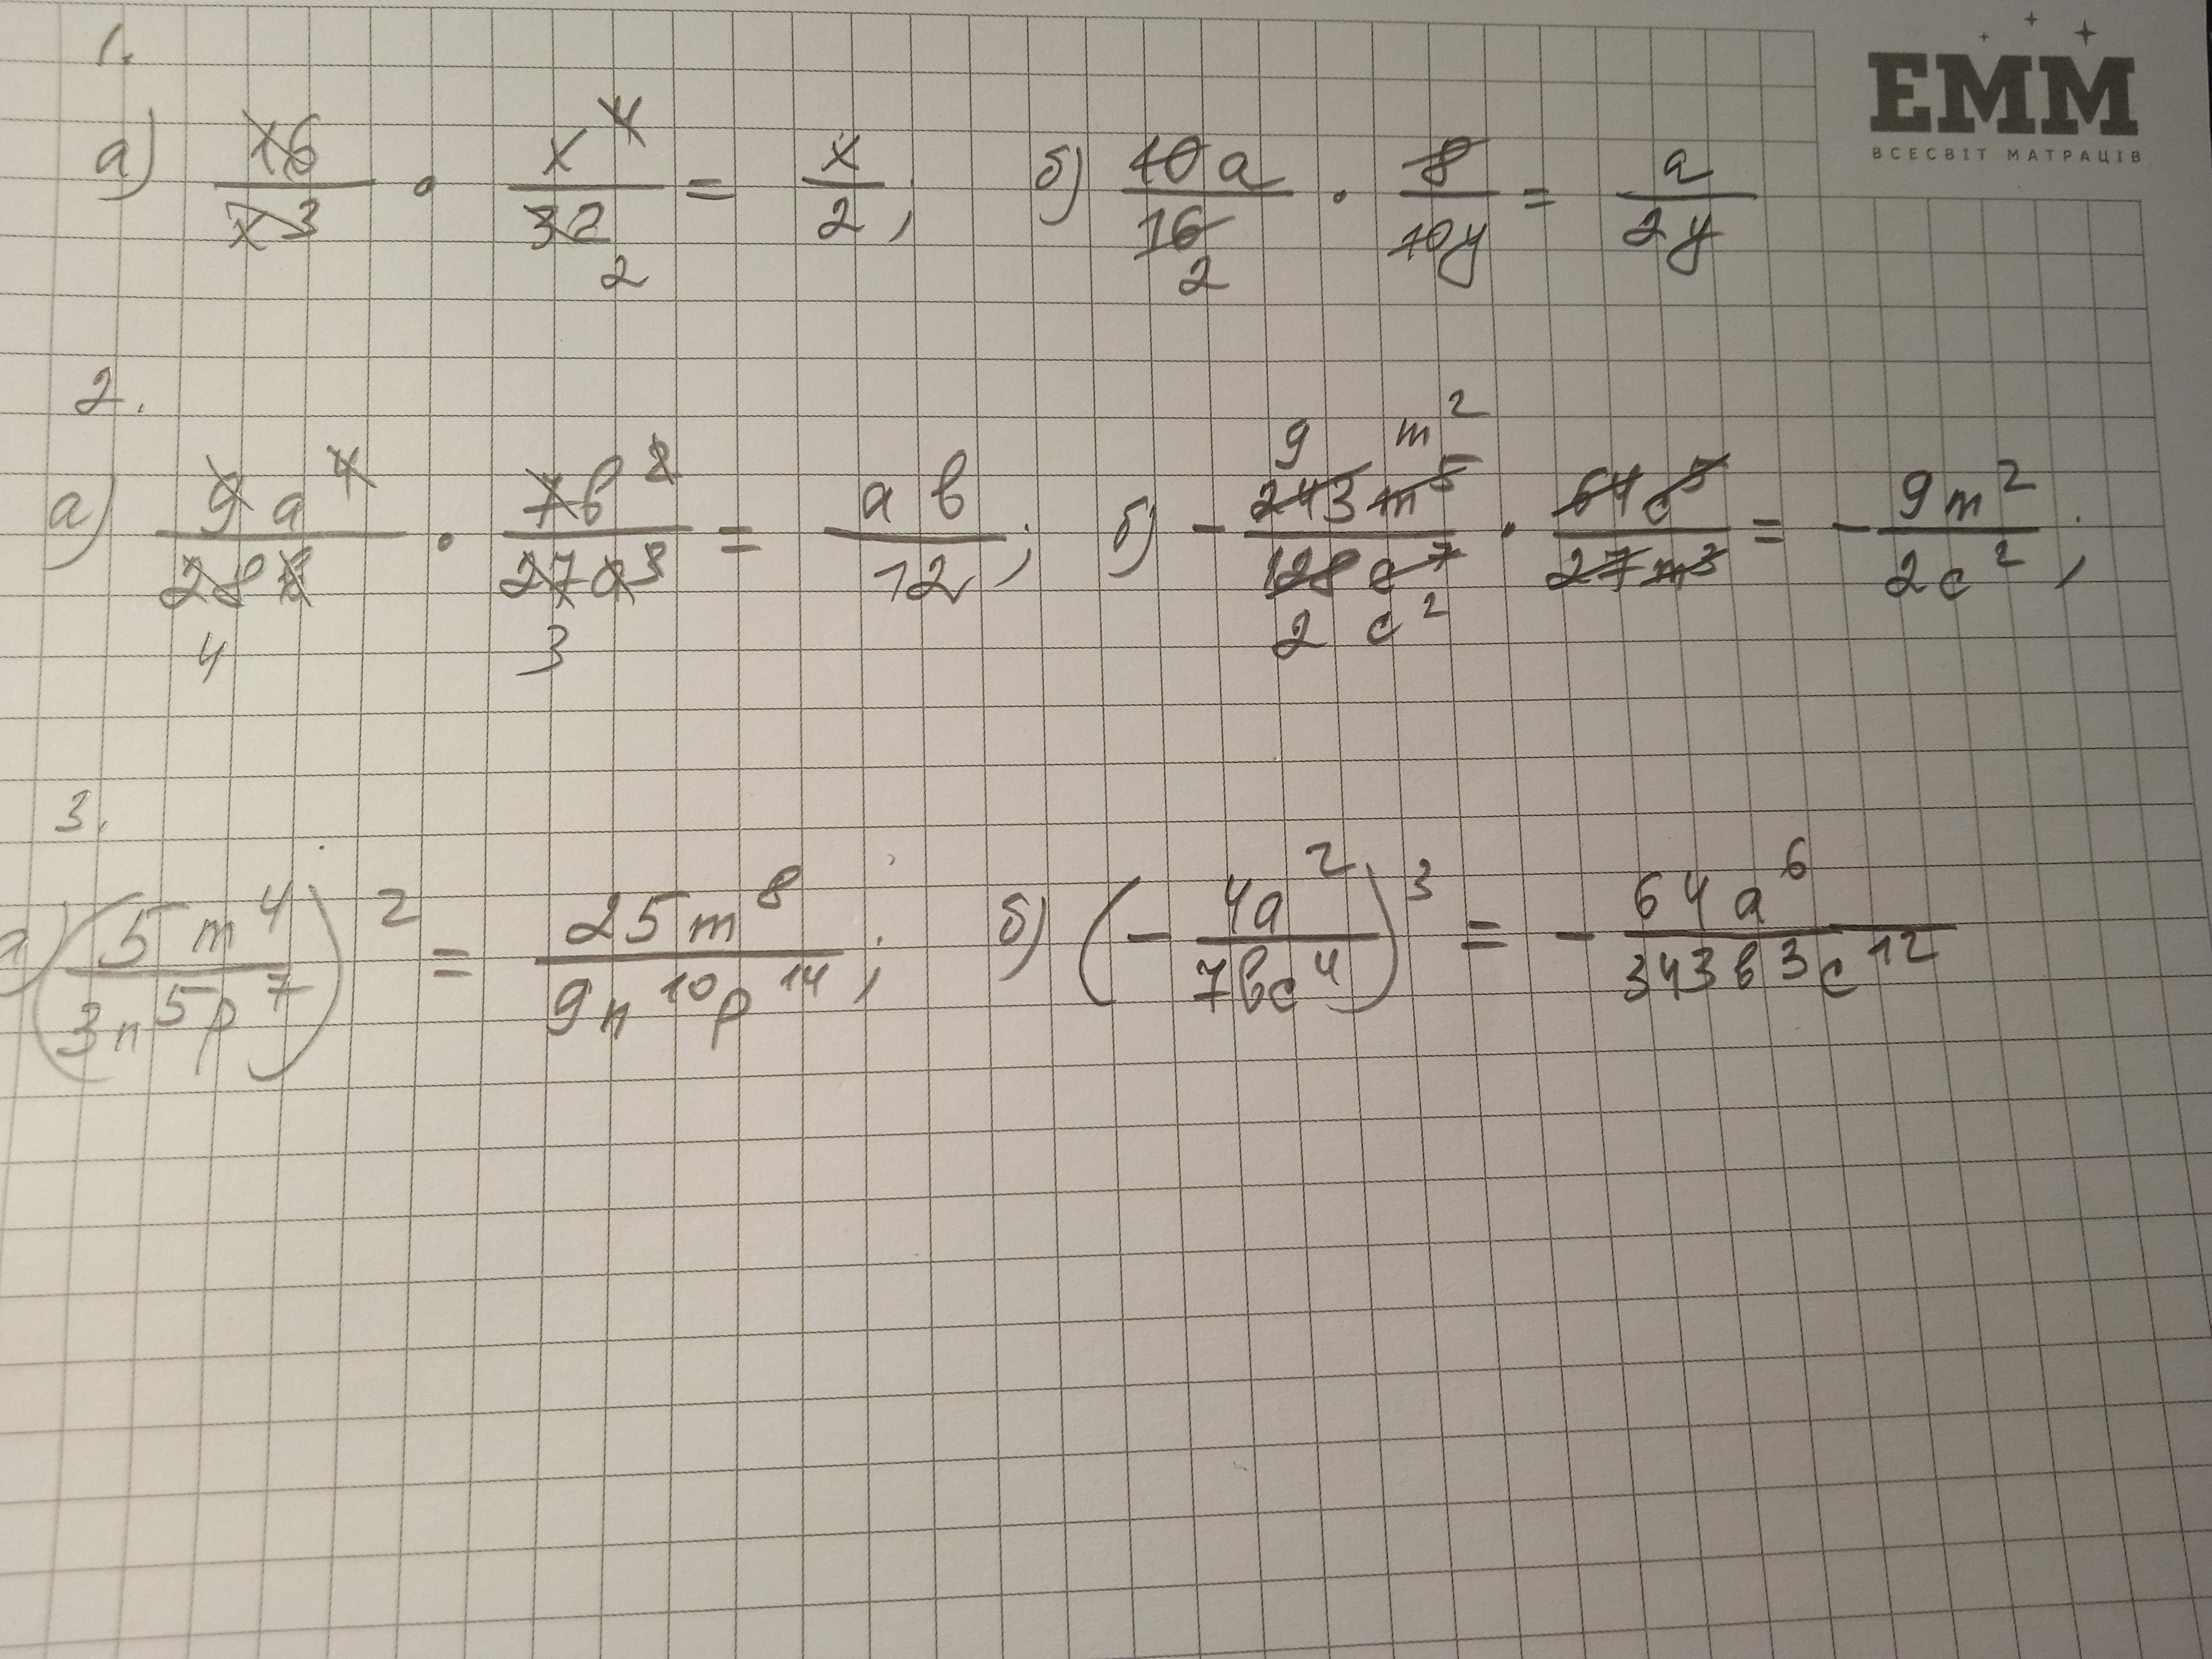 EMM
ВСЕСВІТ МАТРАЦІВ
1.
а) x6/x3 · x^4/32 2 = x/2; б) 10a/16 2 · 8/10y = a/2y
2.
а) 9a^4/28в 4 · 7в^2/27a^3 3 = aв/12; б) - 9 m^2 243m^5/128c^7 2 c^2 · 64c^5/27m^3 = - 9m^2/2c^2;
3.
а) (5m^4/3n^5p^7)^2 = 25m^8/9n^10p^14; б) (- 4a^2/7вc^4)^3 = - 64a^6/343в^3c^12